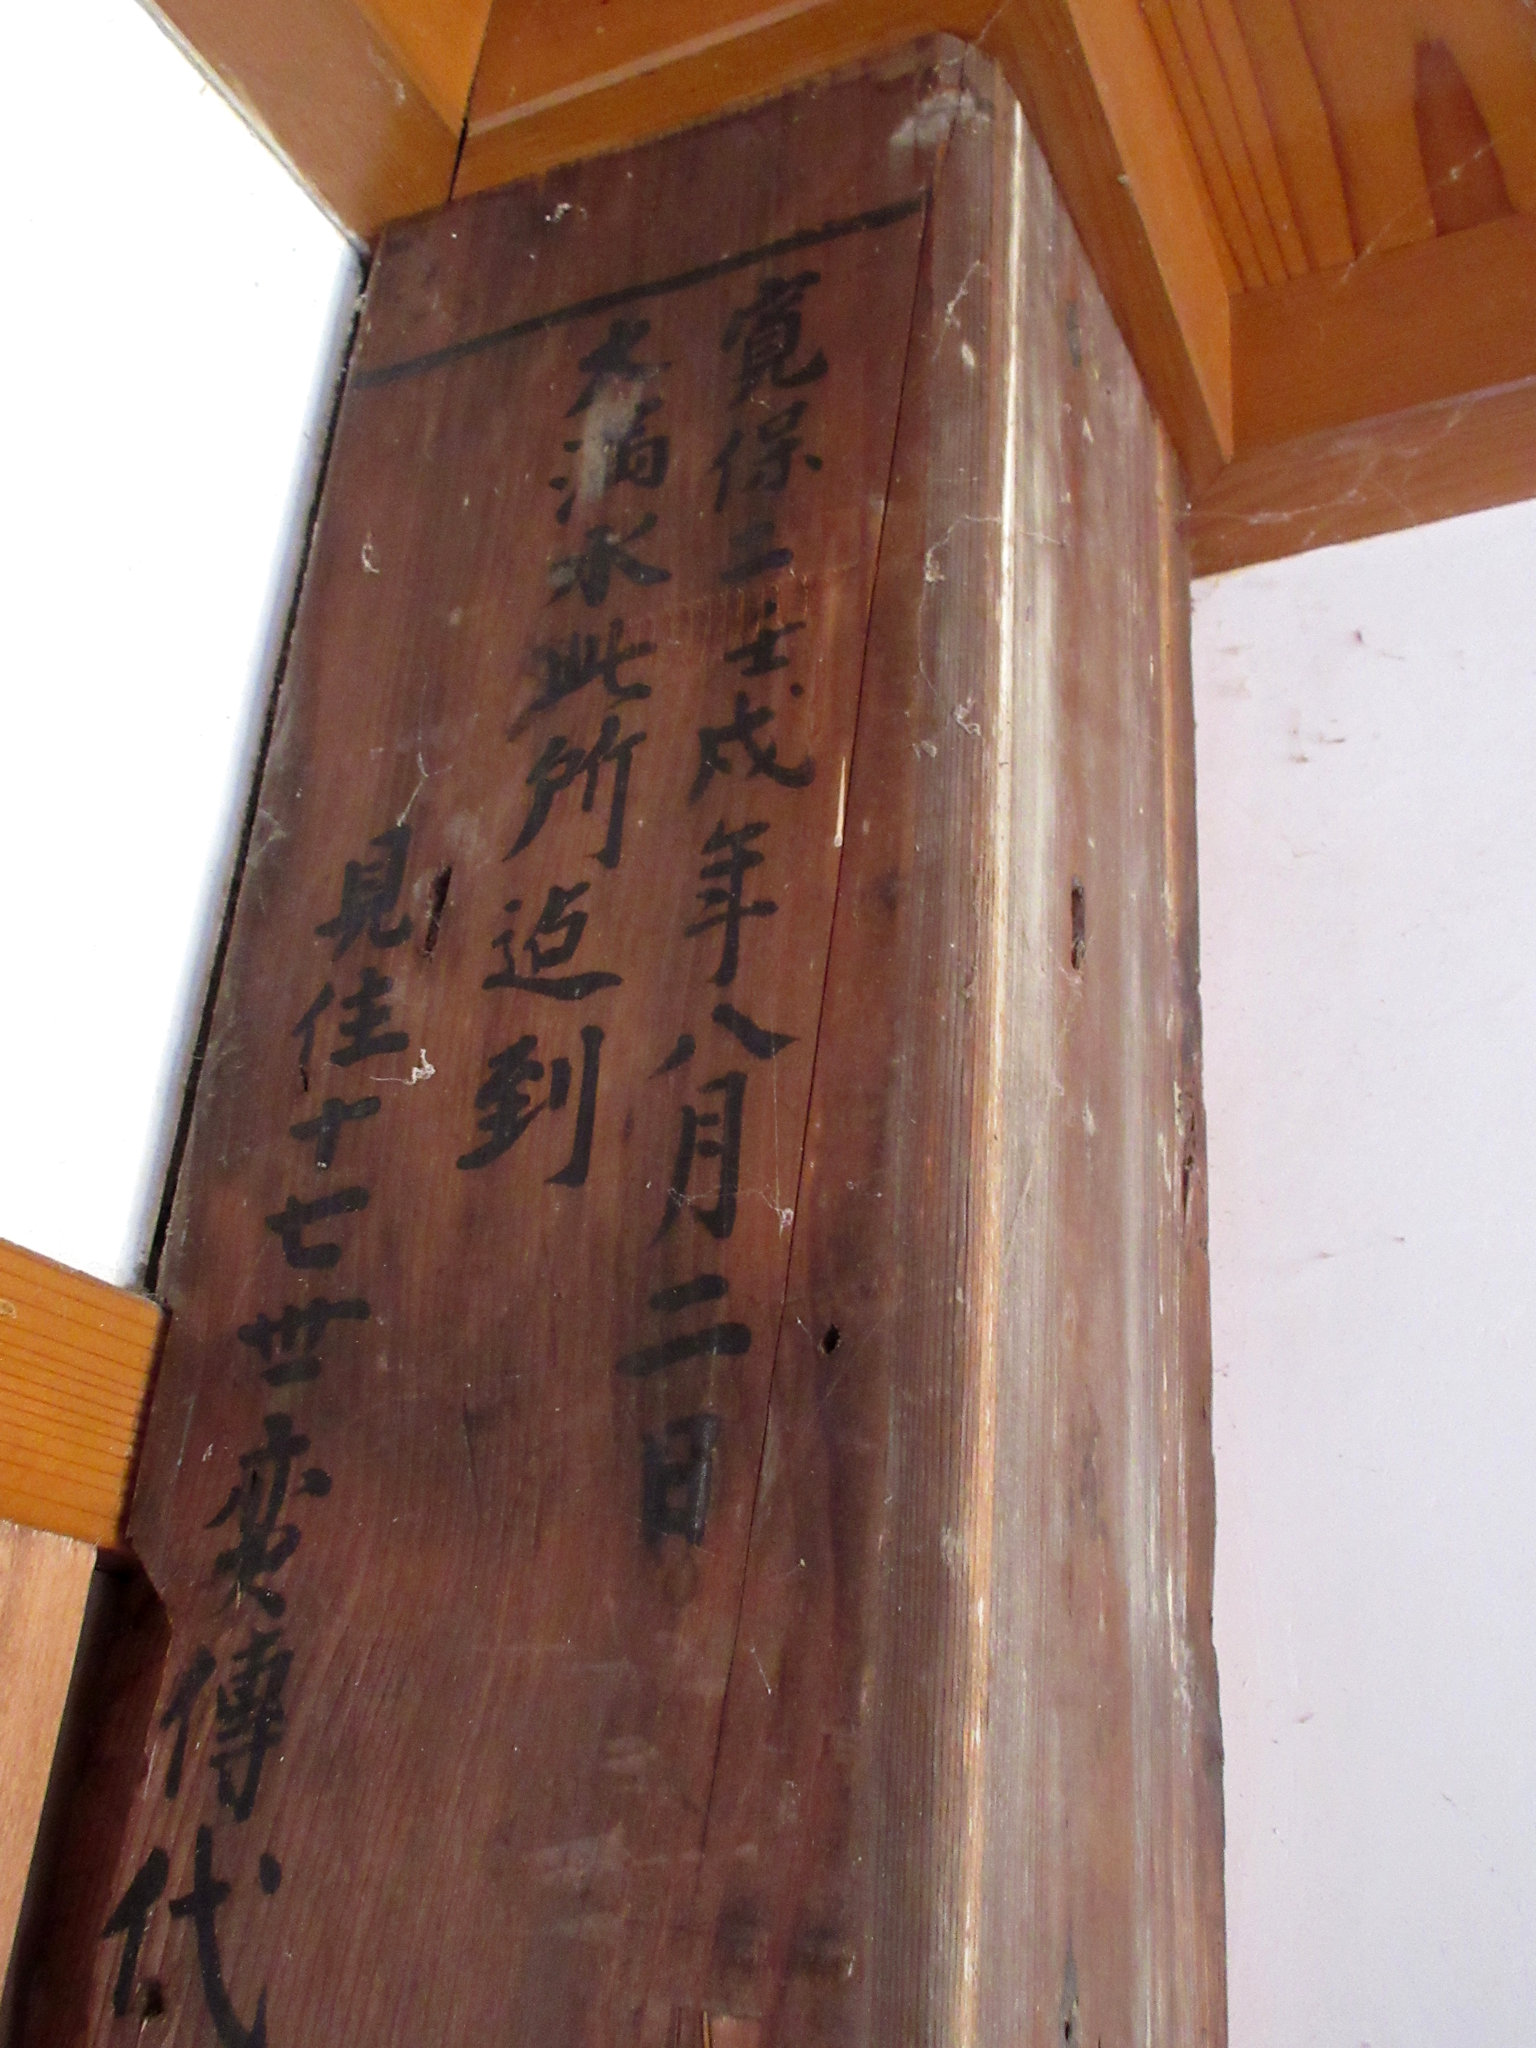 寛保二壬戌年八月二日
大満水此所迠到
見住十七世蛮傳代